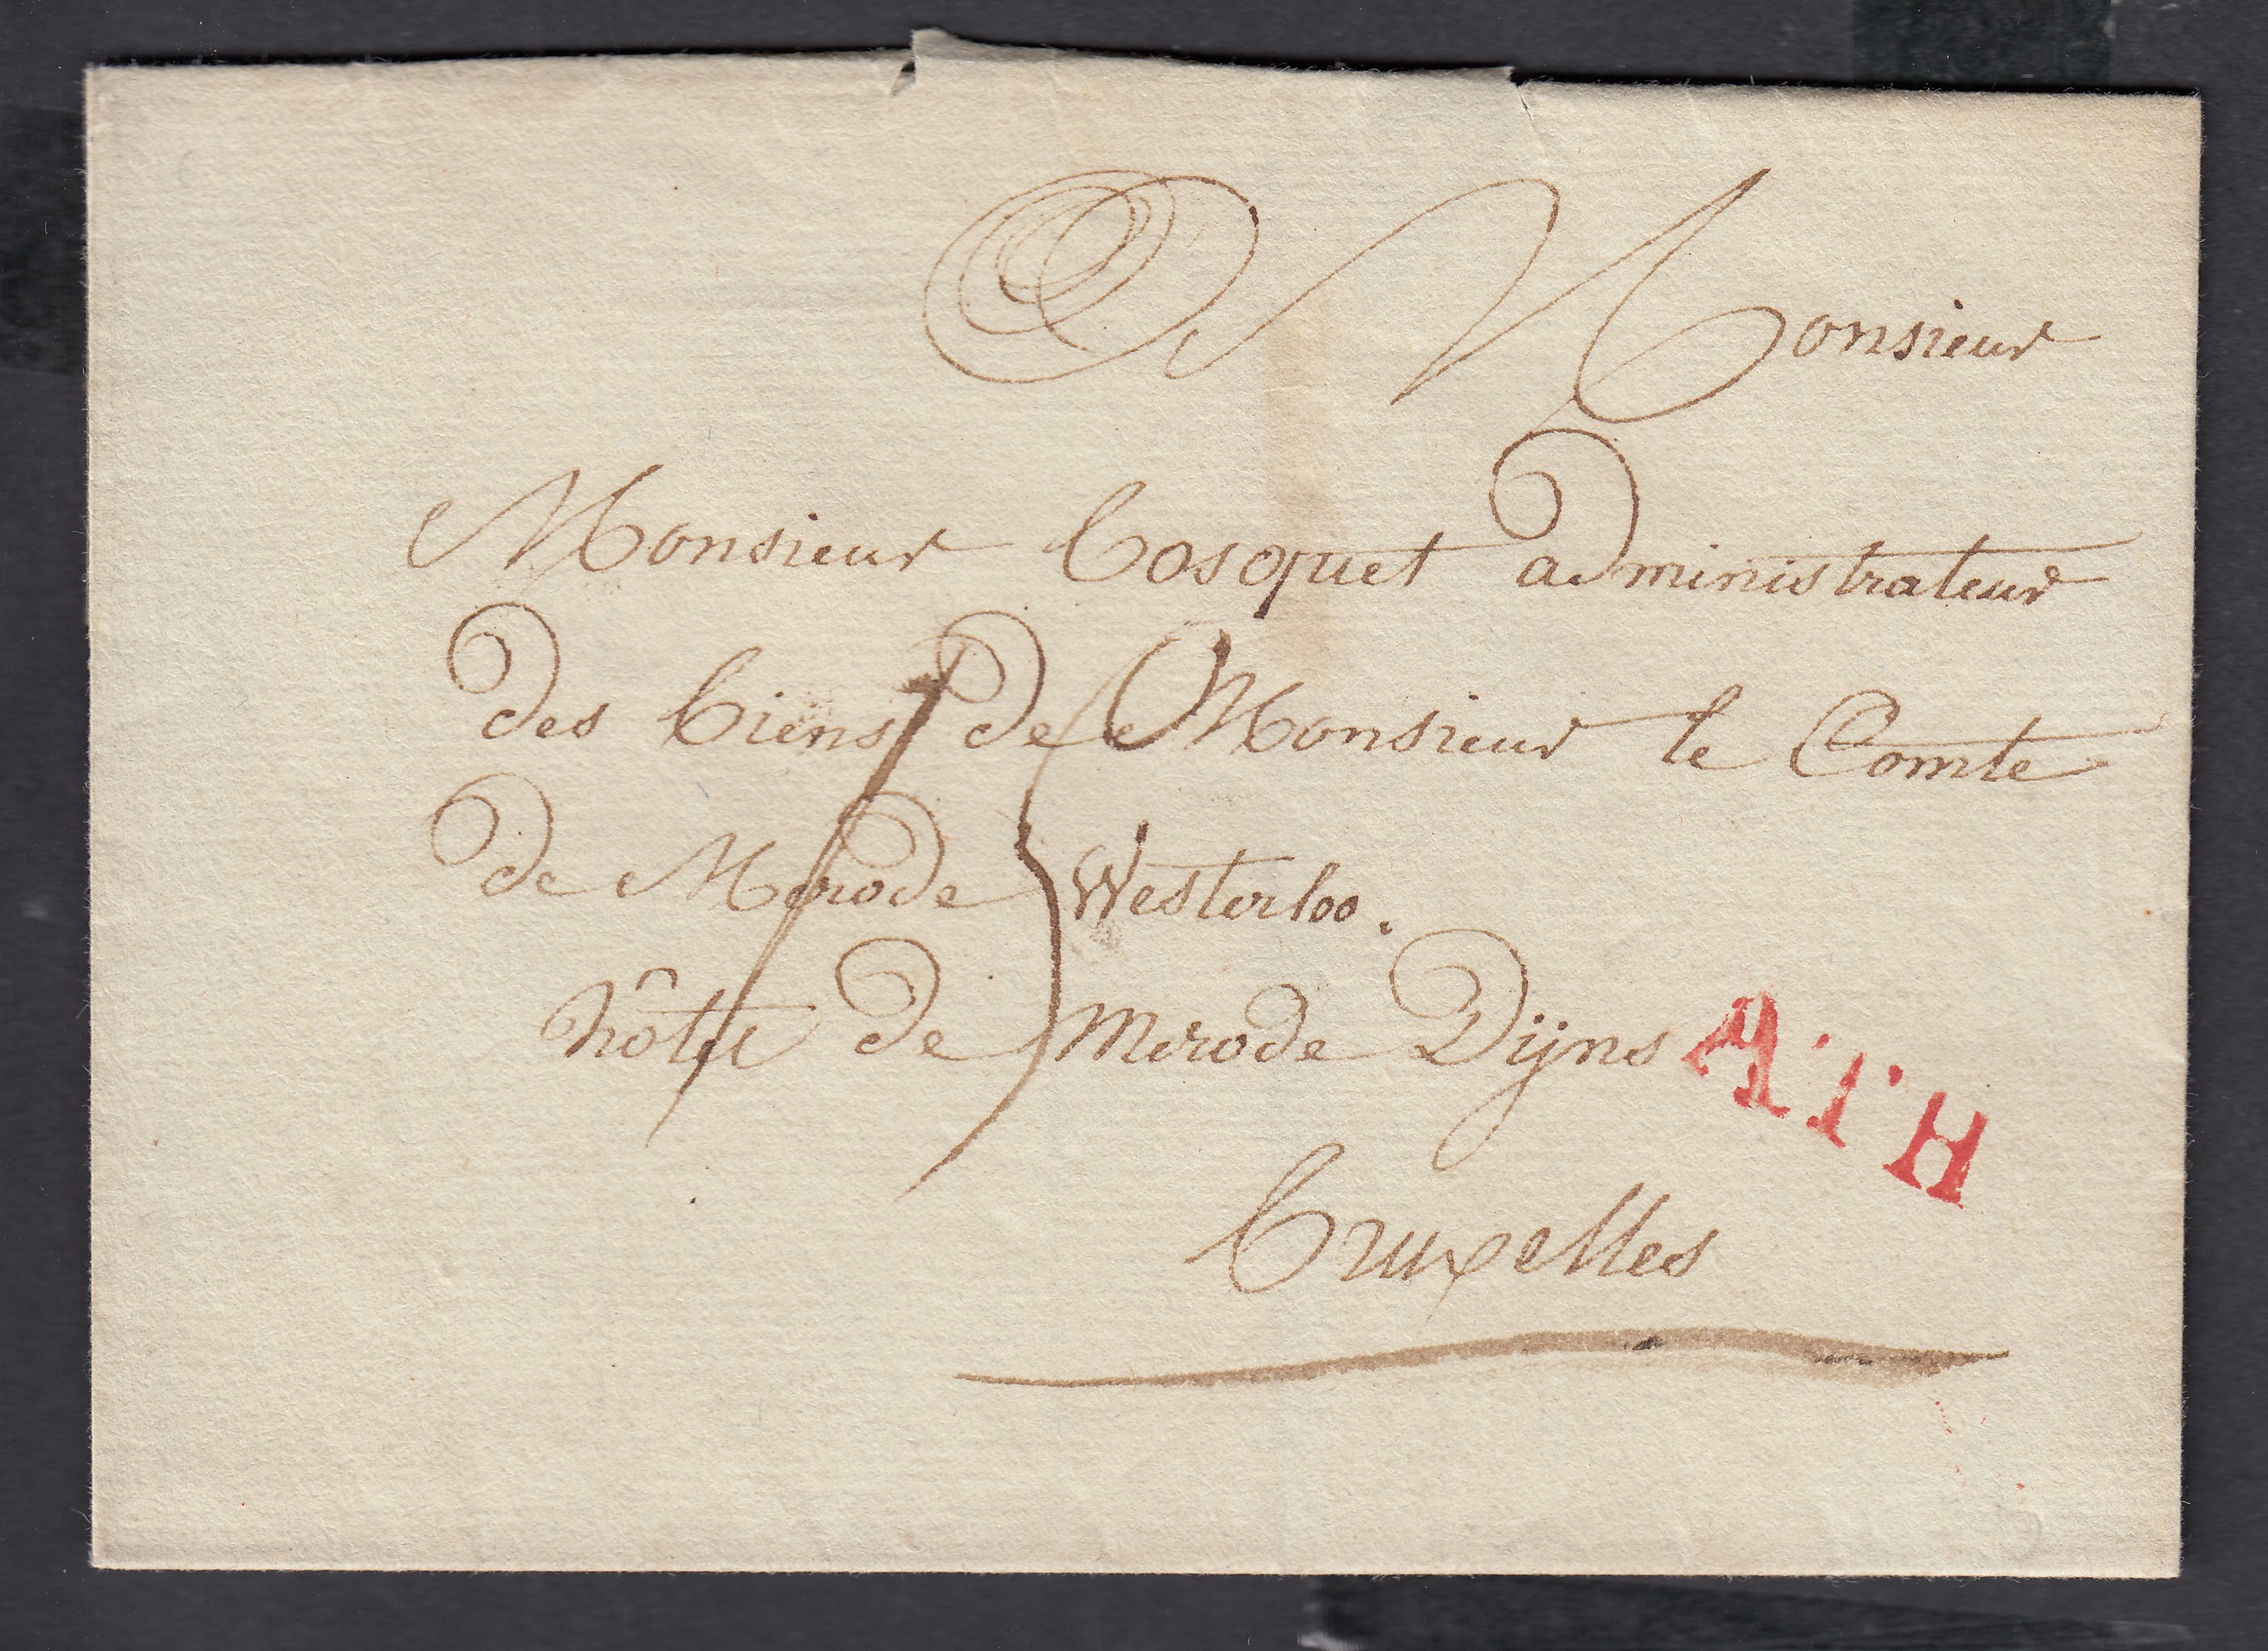 Monsieur
Monsieur bosquet administrateur
des biens de Monsieur le Comte
de Merode Westerloo.
hôtel de Merode Dÿns
bruxelles
ATH